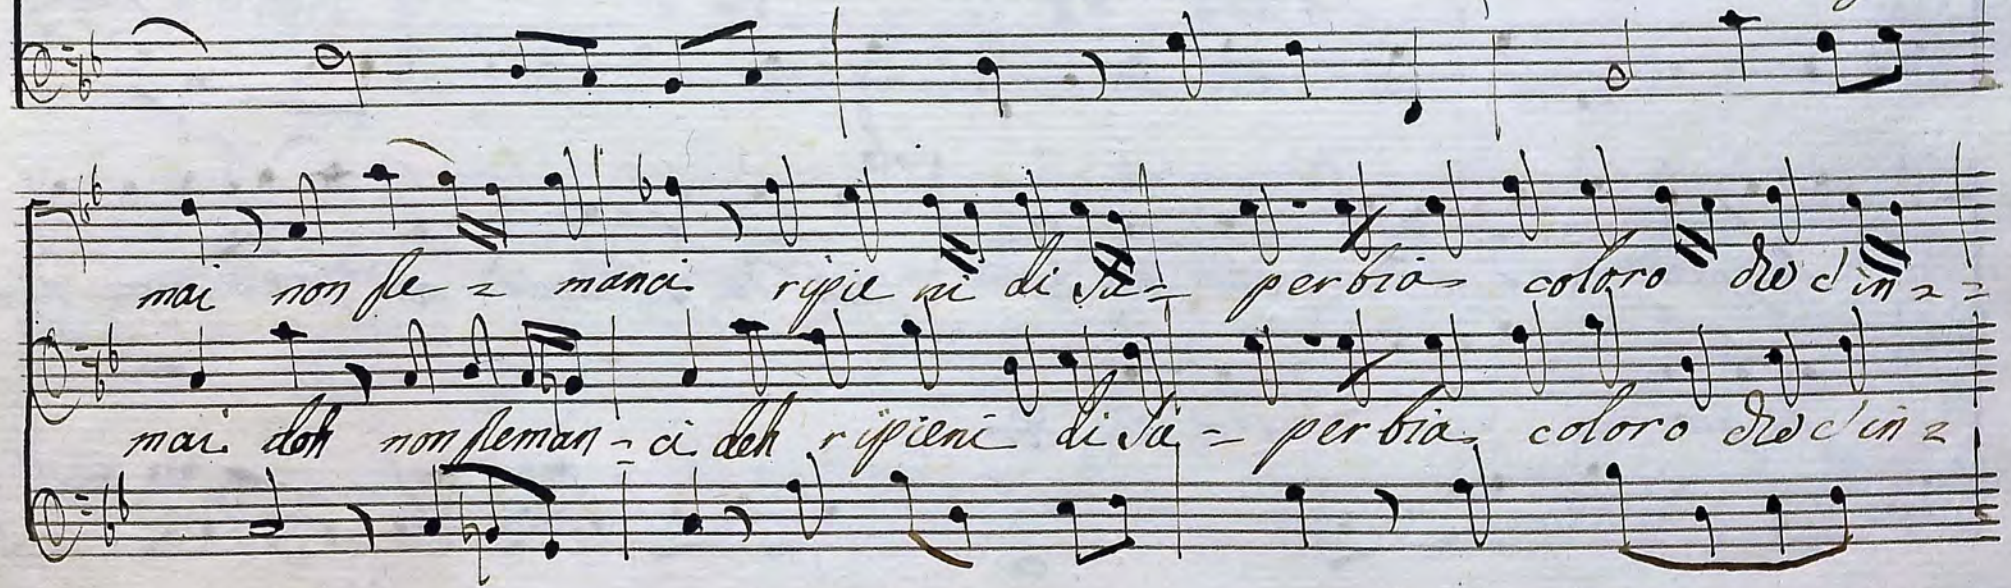 mai non fle = manci ripie ni di su = perbia coloro che c'in = =
mai deh non fleman = ci deh ripieni di su = = perbia coloro che c'in =